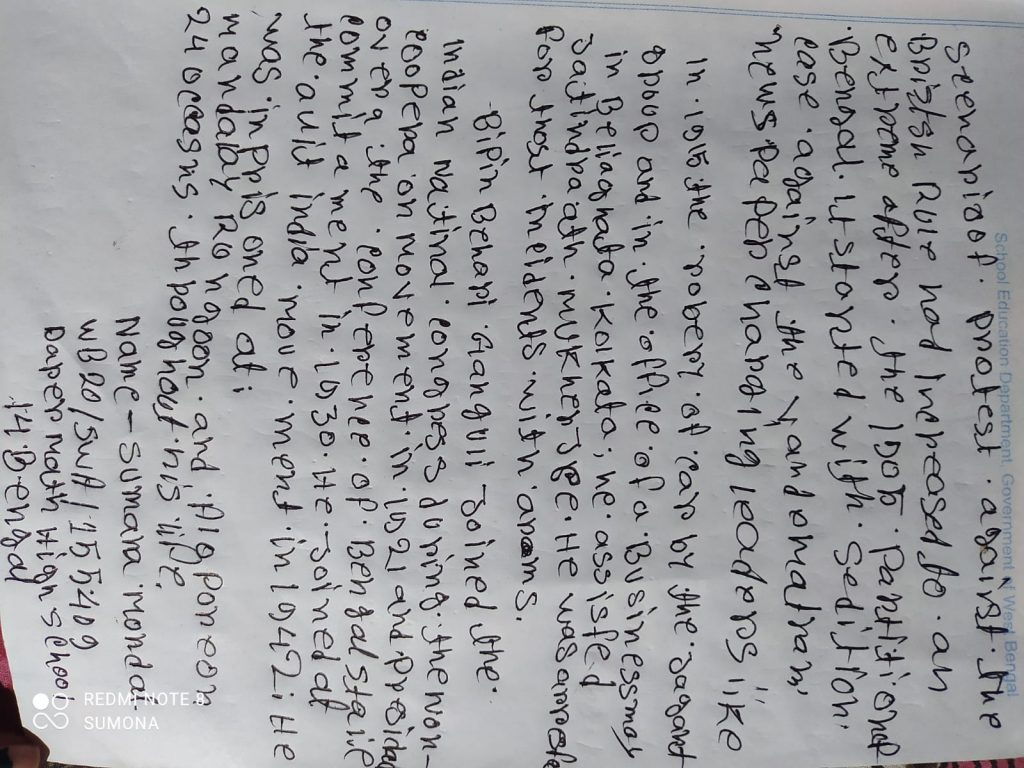 School Education Department, Government of West Bengal
scenario of. protest. against. the
British Role had increased to. an
extreme after. the 1905. partition of
Bengal. It started with. sedition.
case. against the yandomatram,
news paper charging leaders like
In. 1915 the. robery. of. car by the. Jagant
group and in. the office. of a. Businessmay
in Beliaghata. kolkata; he. assisted
Jaitindra ath. mukher-Jee. He was arreste
for those incidents. with. arams.
-Bipin Behari. Ganguli Joined the.
Indian National. congres during. the non-
coopera on movement. in 1921 and presided
overg. the. conference of. Bengal state
commit a ment in. 1930. He. Joined at
the. auit india. move. ment in 1942; He
was inprisoned at;
mandalay Ro ngoon. and Alg porecon
24 occasns. throughout his life.
Name - sumana monda
WB20/SWA/155409
Daper math High schoo
14 Bengal
REDMI NOTE 8
SUMONA